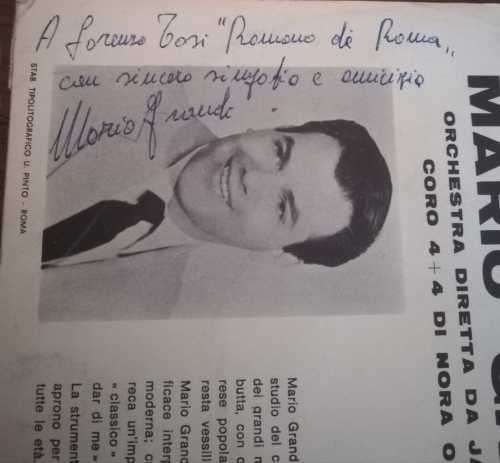 A Lorenzo Tosi "Romano de Roma„
con sincera simpatia e amicizia
Mario Grandi
STAB TIPOLITOGRAFICO U. PINTO - ROMA
MARIO G
ORCHESTRA DIRETTA DA JA
CORO 4+4 DI NORA O
Mario Grand
studio del c
dei grandi n
butta, con c
rese popola
resta vessill
Mario Granc
ficace interp
moderna; c
reca un'imp
« classico »
dar di me »
La strument
aprono per
tutte le età.